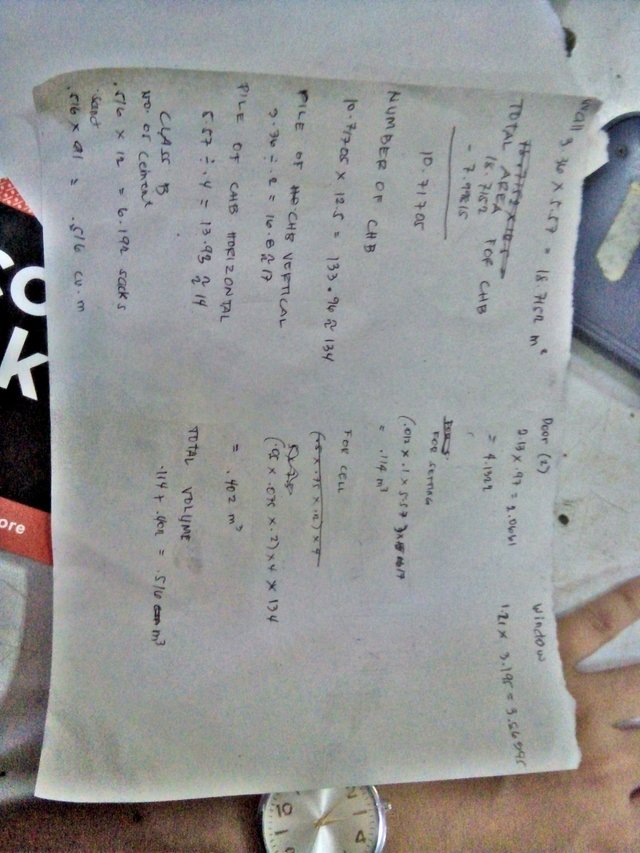 Wall 3.36 x 5.57 = 18.7152 m²
TOTAL AREA FOR CHB
18.7152
- 7.99815
10.71705
NUMBER OF CHB
10.71705 x 12.5 = 133.96 ≈ 134
PILE OF CHB VERTICAL
3.36 ÷ .2 = 16.8 ≈ 17
PILE OF CHB HORIZONTAL
5.57 ÷ .4 = 13.93 ≈ 14
CLASS B
NO. OF cement
.516 x 12 = 6.192 sacks
sand
.516 x 01 = .516 cu.m
Door (2)
2.13 x .97 = 2.0661
= 4.1322
FOR SETTING
(.012 x .1 x 5.57
= .114 m³
FOR CELL
(.05 x .075 x .2) x 4 x 134
= .402 m³
TOTAL VOLUME
.114 + .402 = .516 m³
Window
1.21 x 3.195 = 3.86595
ore
10
1
4